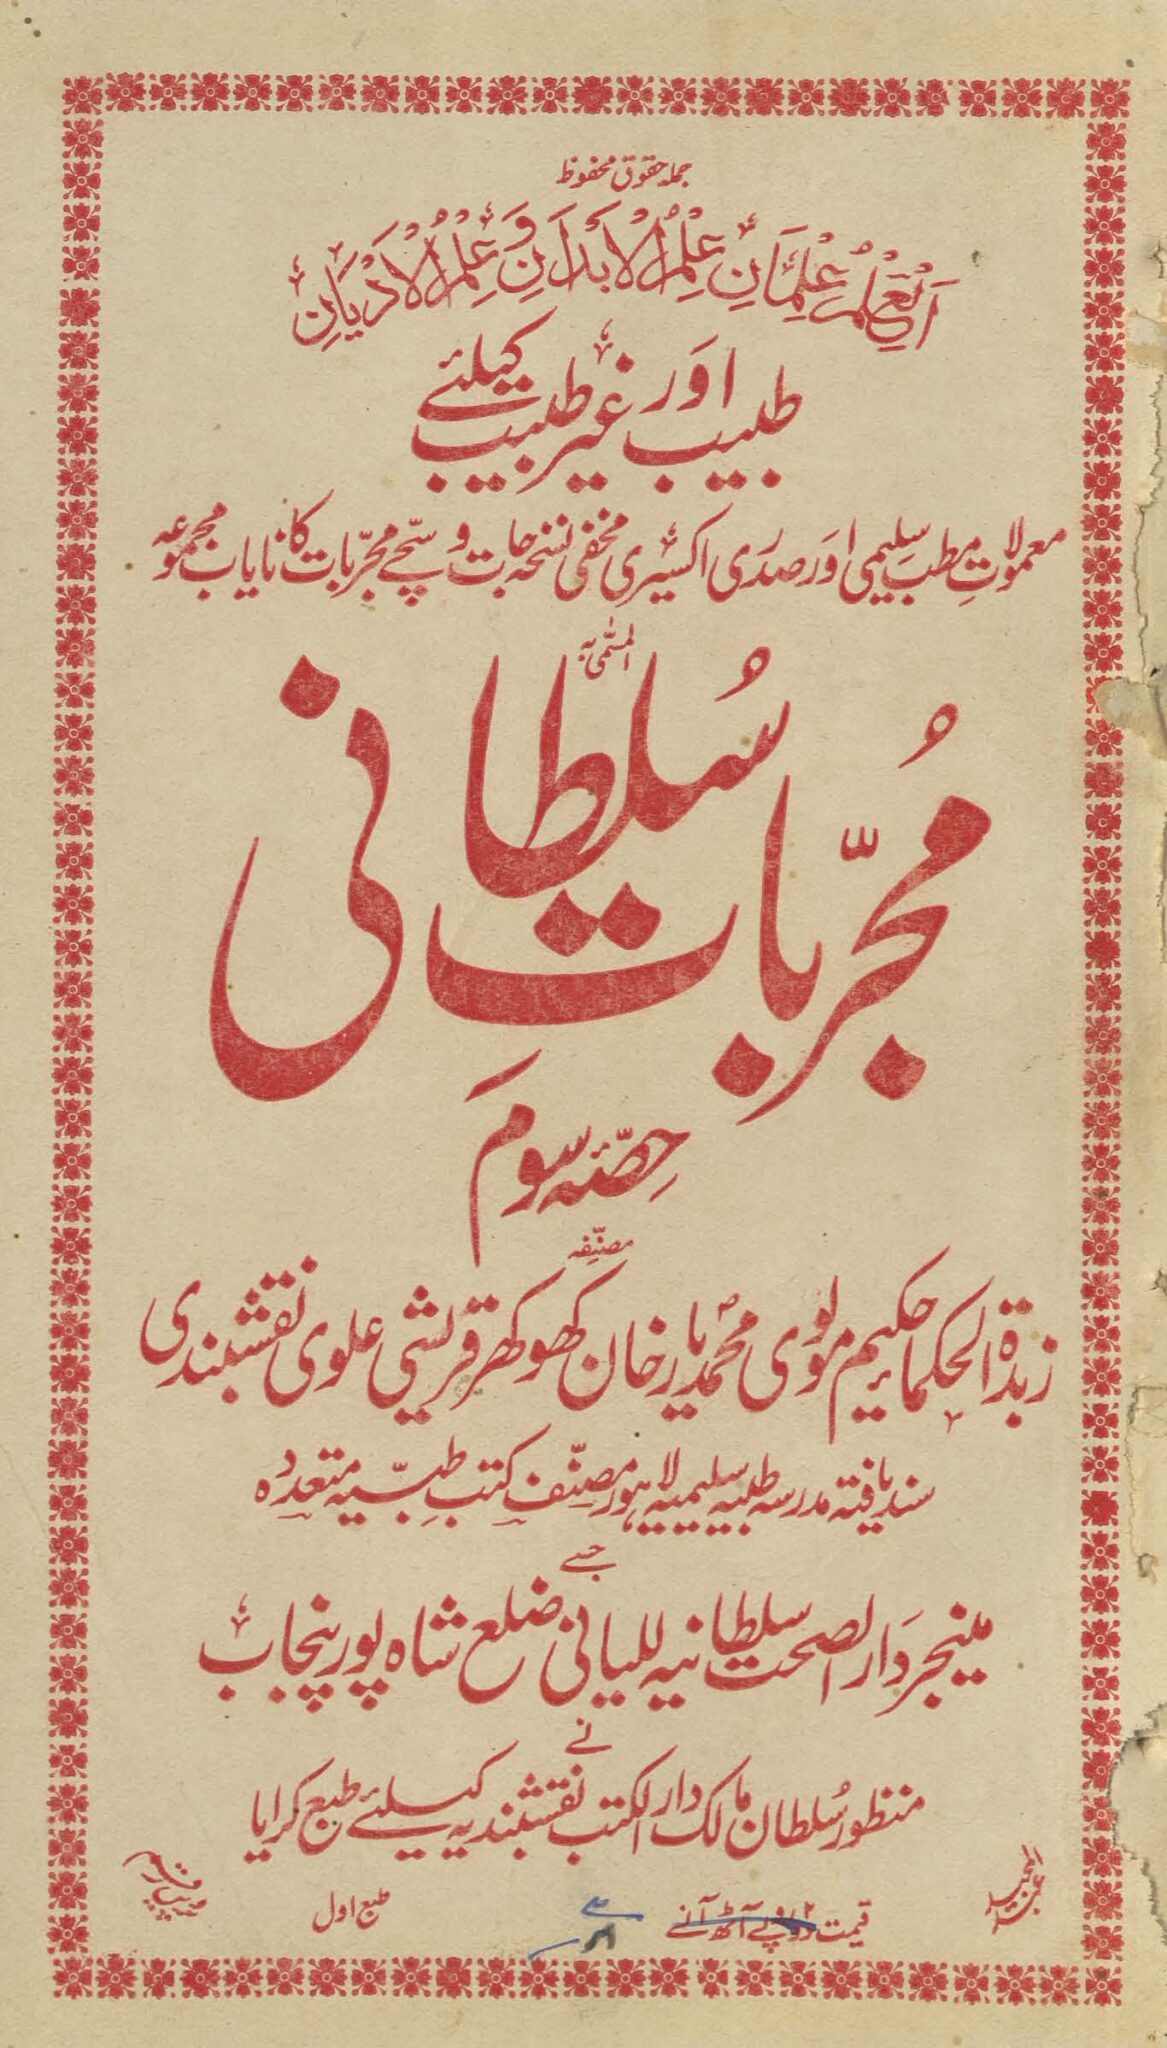 جملہ حقوق محفوظ
اَلْعِلْمُ عِلْمَانِ عِلْمُ الْاَبْدَانِ وَ عِلْمُ الْاَدْیَانِ
طبیب اور غیر طبیب کیلئے
معمولاتِ مطب سلیمی اور صدری اکسیری مخفی نسخہ جات و سچے مجرّبات کا نایاب مجموعہ
المسمّٰی بہ
مُجرّبات سُلطانی
حِصّہ سوم
مصنّفہ
زبدۃ الحکماء حکیم مولوی محمد یار خان کھوکھر قریشی علوی نقشبندی
سند یافتہ مدرسہ طبیہ سلیمیہ لاہور مصنّف کتب طبّیہ متعددہ
جسے
مینجر دار الصحت سلطانیہ للیانی ضلع شاہ پور پنجاب
نے
منظور سُلطان مالک دار الکتب نقشبندیہ کیلئے طبع کرایا
عبد المجید
قیمت دو روپے آٹھ آنے
طبع اول